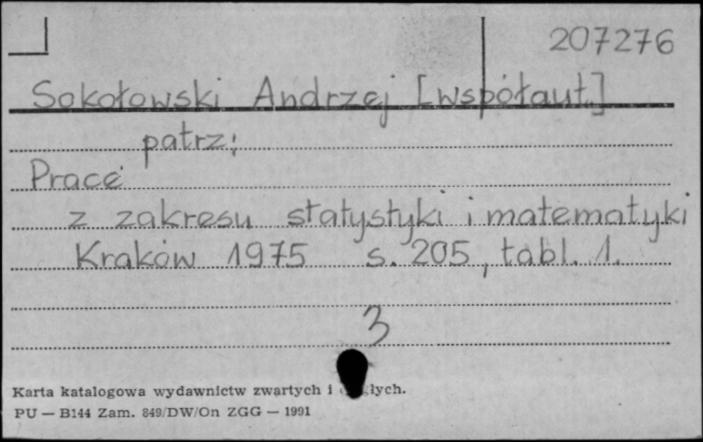 207276
Sokołowski Andrzej [współaut.]
patrz:
Prace
z zakresu statystyki i matematyki
Kraków 1975 s. 205, tabl. 1.
3
Karta katalogowa wydawnictw zwartych i
PU — B144 Zam. 849/DW/On ZGG — 1991